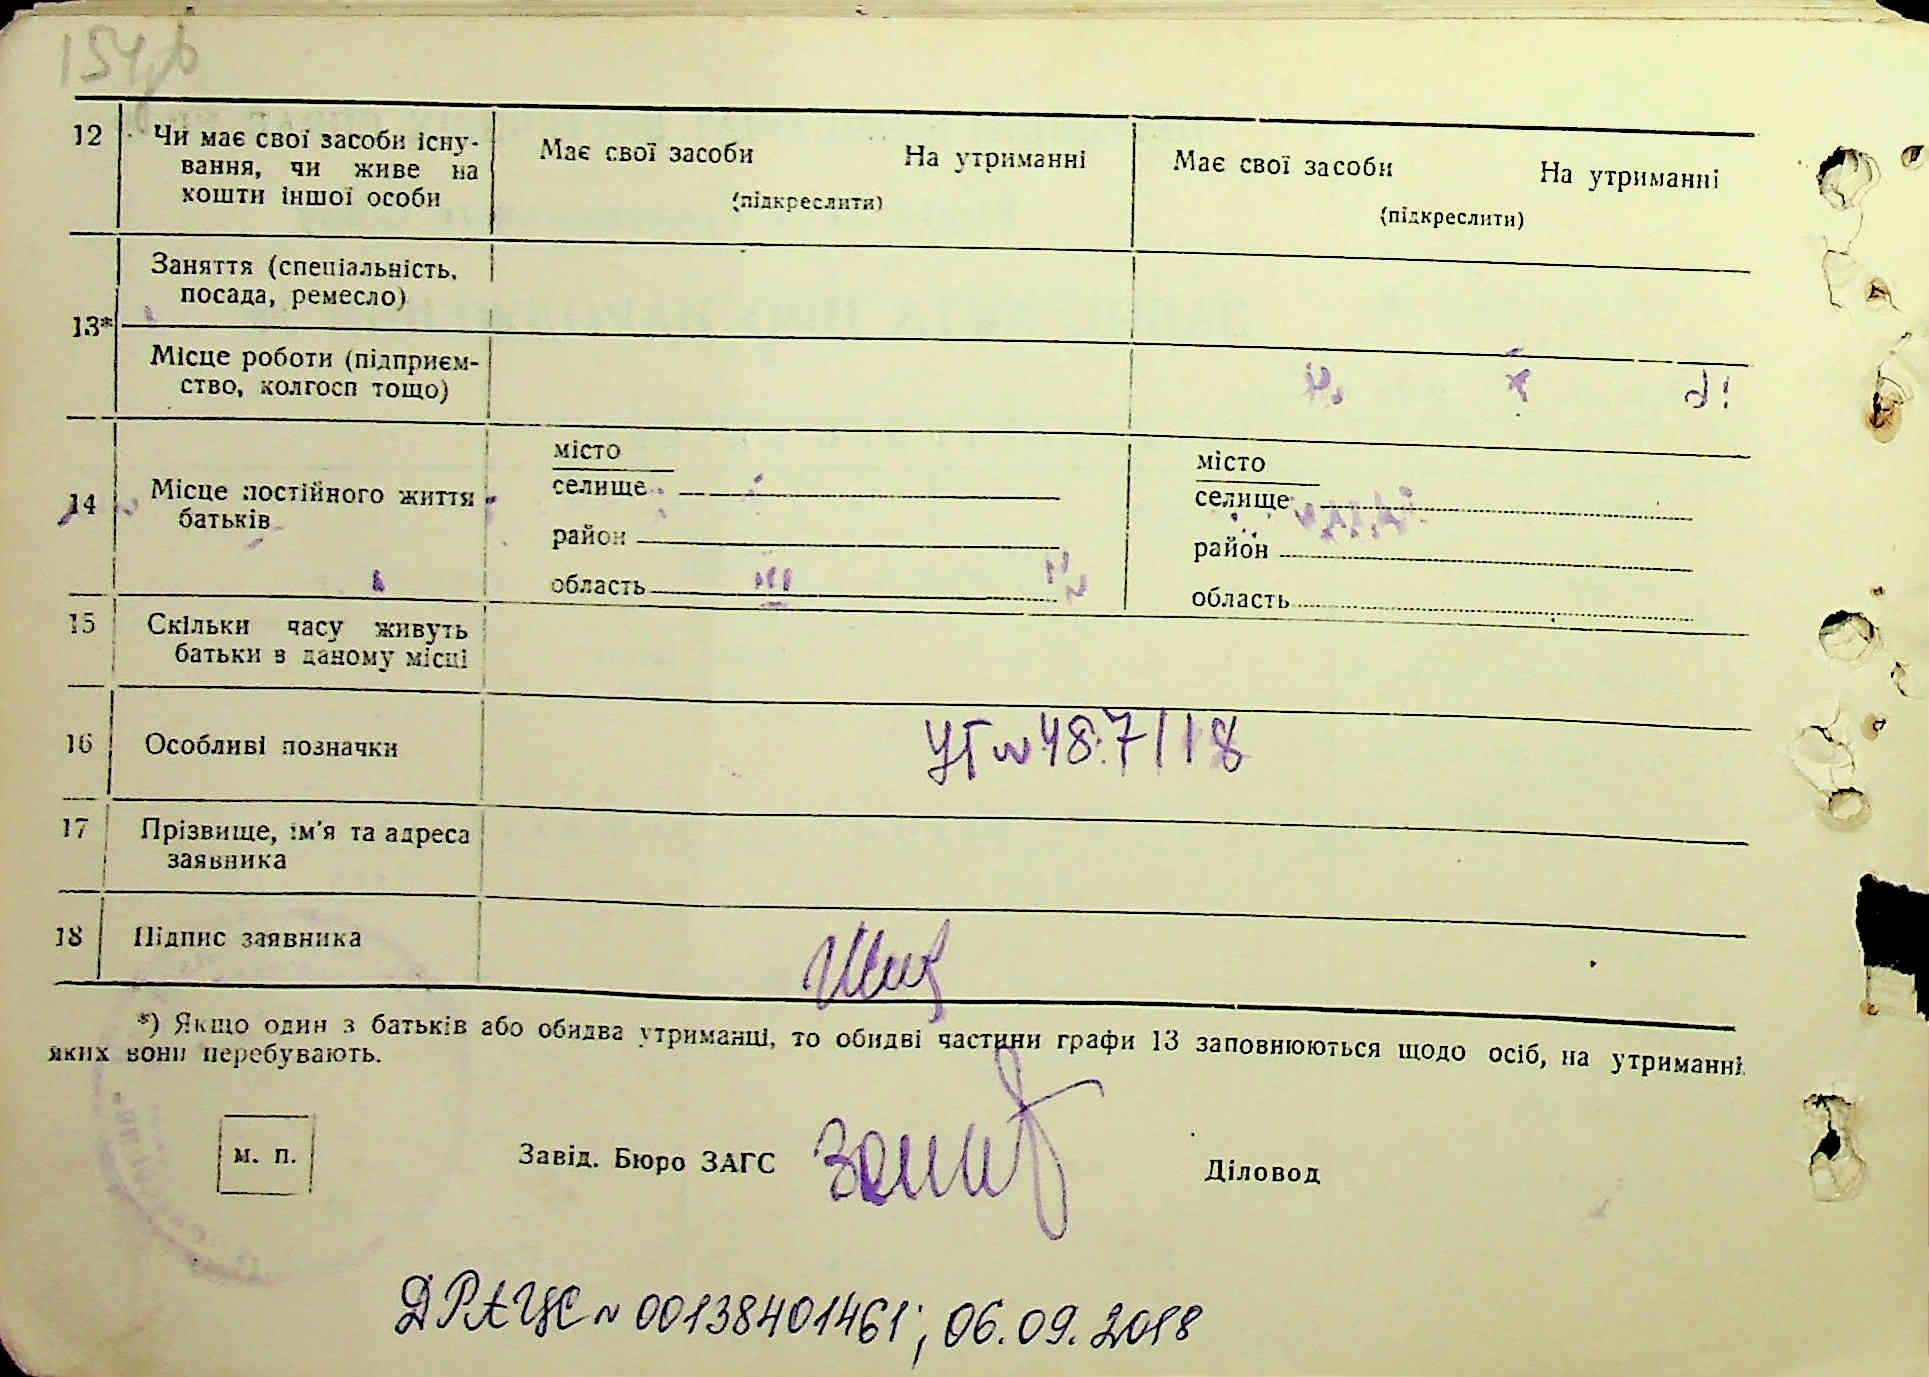 12 Чи має свої засоби існу-
вання, чи живе на
кошти іншої особи
Має свої засоби На утриманні
(підкреслити)
Має свої засоби На утриманні
(підкреслити)
13*
Заняття (спеціальність,
посада, ремесло)
Місце роботи (підприєм-
ство, колгосп тощо)
14 Місце постійного життя
батьків
місто
селище
район
область
місто
селище
район
область
15 Скільки часу живуть
батьки в даному місці
16 Особливі позначки
17 Прізвище, ім'я та адреса
заявника
18 Підпис заявника
*) Якщо один з батьків або обидва утриманці, то обидві частини графи 13 заповнюються щодо осіб, на утриманні
яких вони перебувають.
м. п.
Завід. Бюро ЗАГС
Діловод
ДРАЦС № 00138401461; 06.09.2018